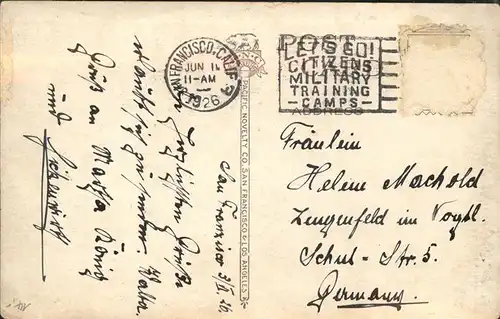 SAN FRANCISCO, CALIF.
JUN 1
11-AM
1926
POST
LET'S GO!
CITIZENS
MILITARY
TRAINING
-CAMPS-
ADDRESS
PACIFIC NOVELTY CO., SAN FRANCISCO & LOS ANGELES
San Franzisco
Herzlichsten Grüße
erlaubt sich zu senden. Walter.
Gruß an Martha König
und
Fräulein
Helene Machold
Lengenfeld im Vogtl.
Schul-Str. 5.
Germany.